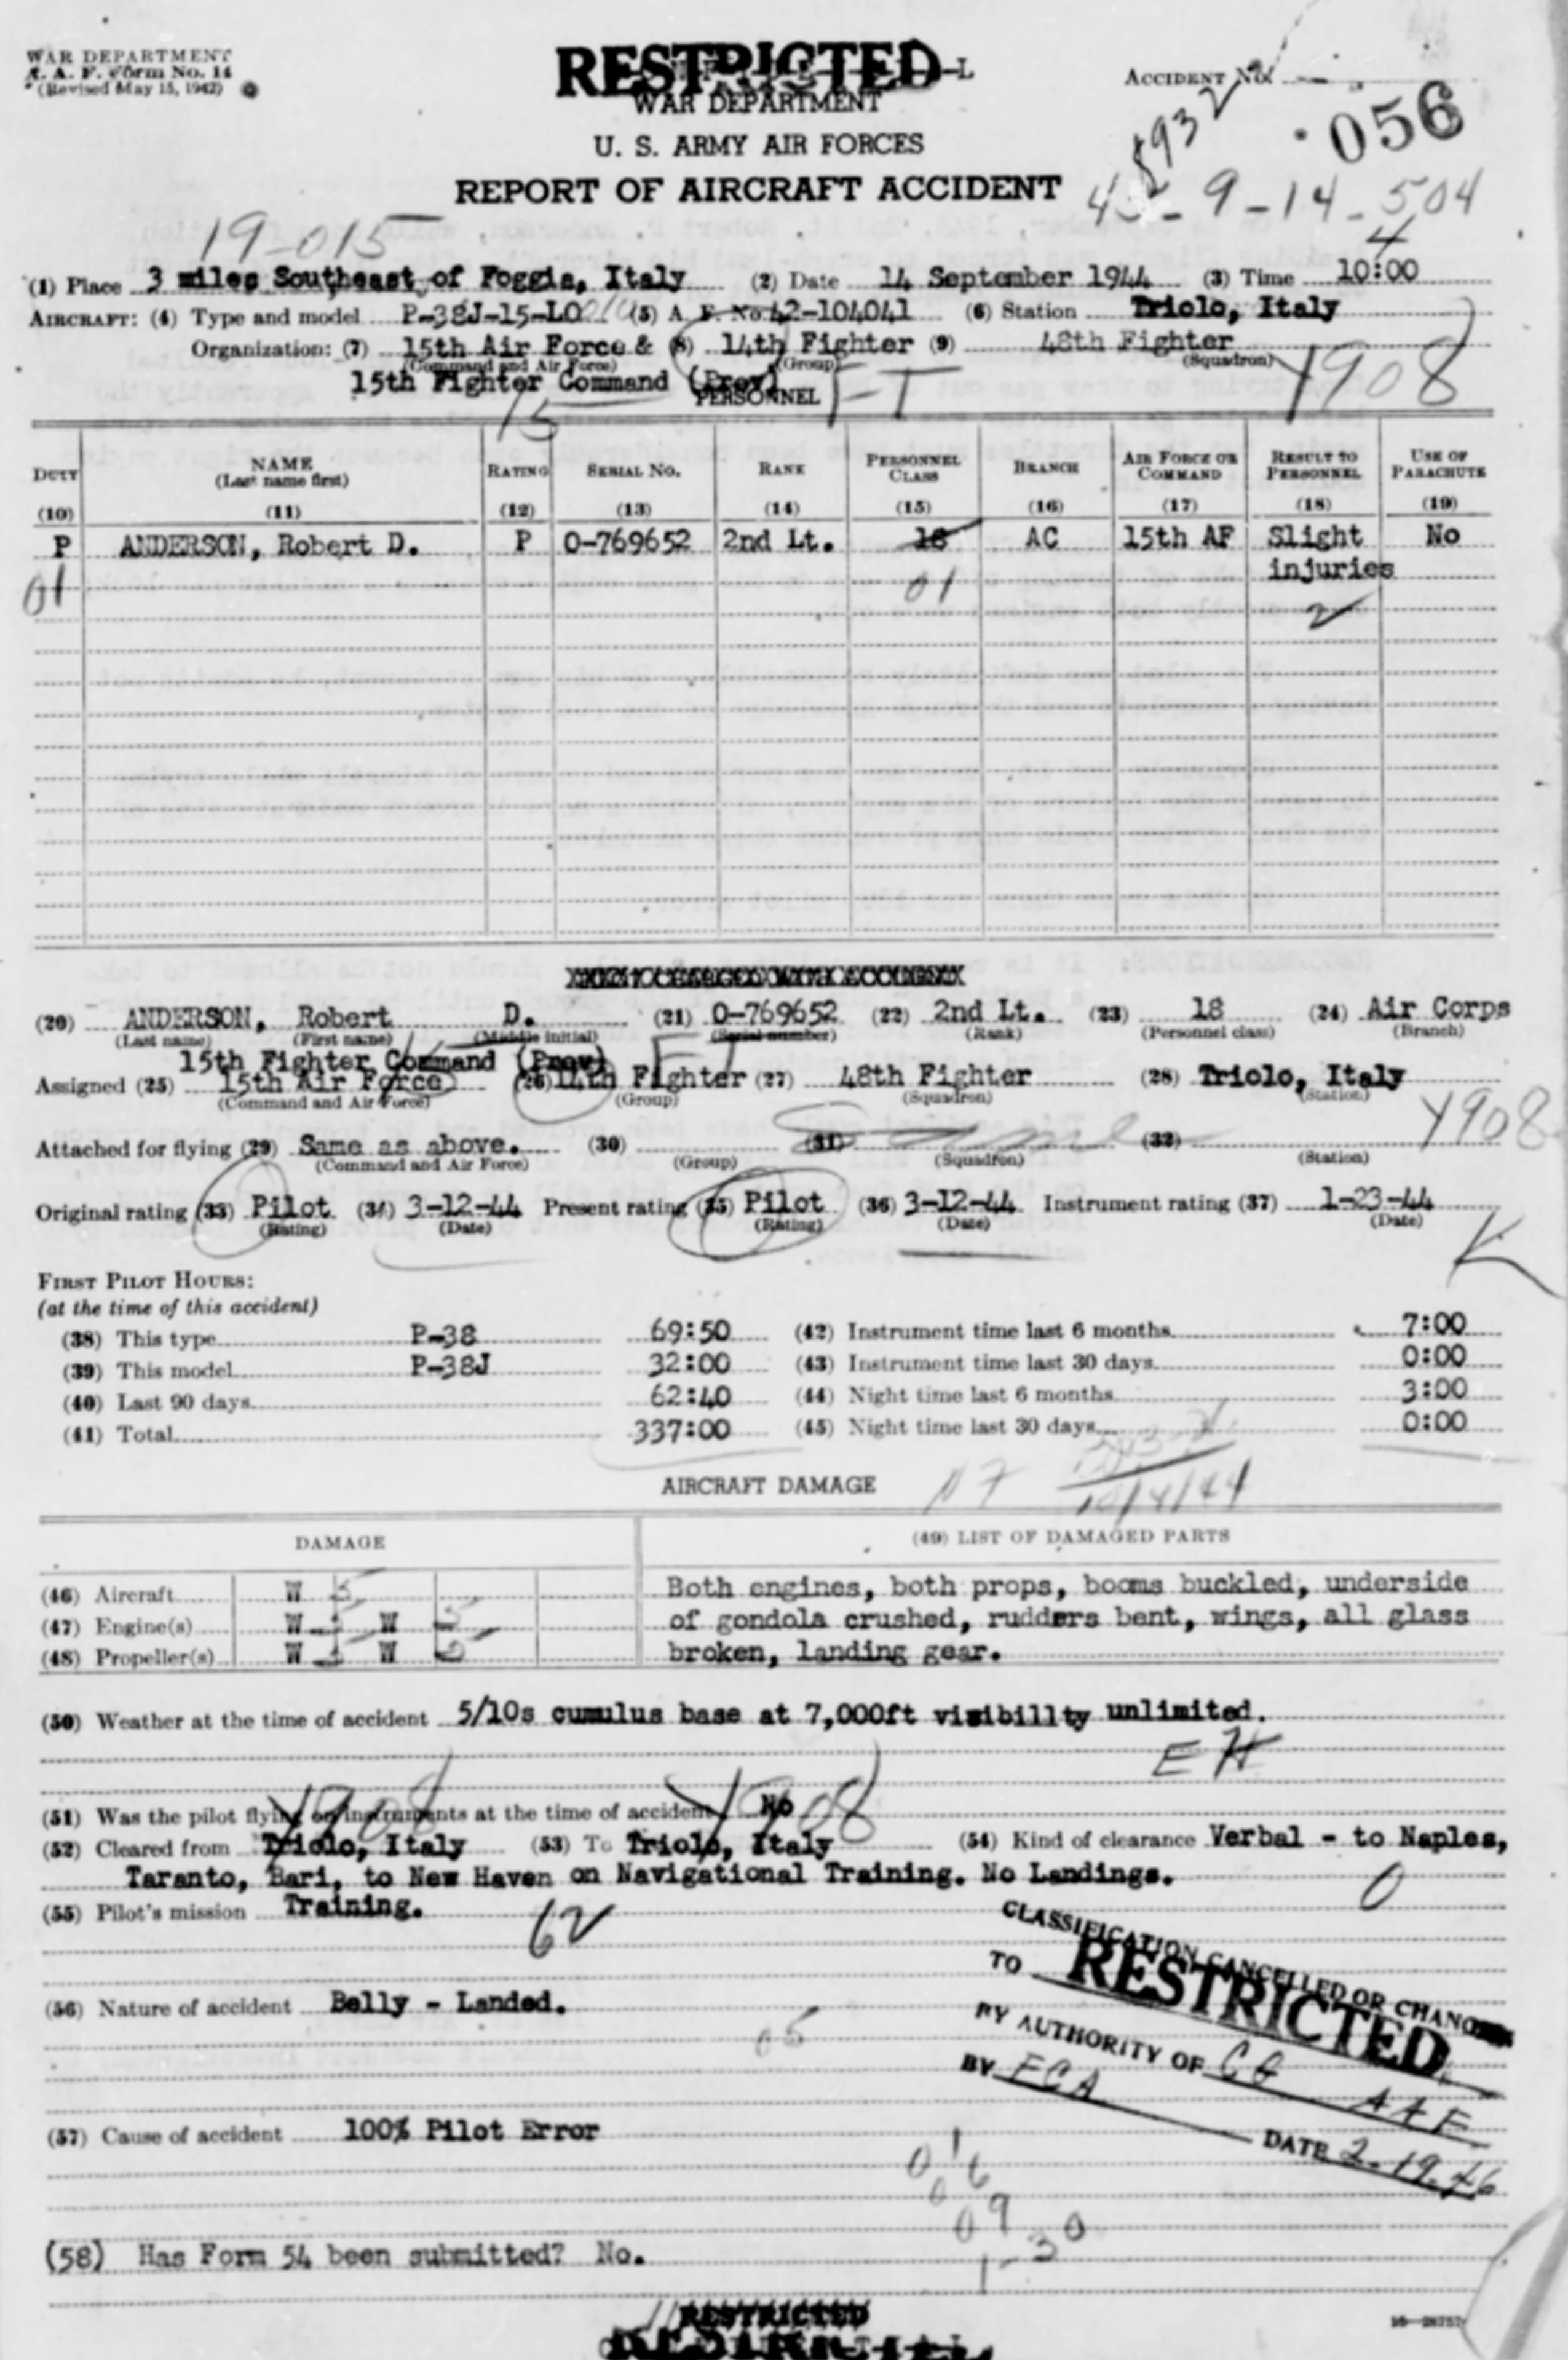 WAR DEPARTMENT
A. A. F. Form No. 14
(Revised May 15, 1942)
RESTRICTED
WAR DEPARTMENT
U. S. ARMY AIR FORCES
REPORT OF AIRCRAFT ACCIDENT
ACCIDENT No.
056
45-9-14-504
19-015
(1) Place 3 miles Southeast of Foggia, Italy (2) Date 14 September 1944 (3) Time 10:00
AIRCRAFT: (4) Type and model P-38J-15-LO (5) A. F. No. 42-104041 (6) Station Triolo, Italy
Organization: (7) 15th Air Force & (8) 14th Fighter (9) 48th Fighter
(Command and Air Force) (Group) (Squadron)
15th Fighter Command (Prov)
PERSONNEL FT Y908
DUTY NAME (Last name first) RATING SERIAL NO. RANK PERSONNEL CLASS BRANCH AIR FORCE OR COMMAND RESULT TO PERSONNEL USE OF PARACHUTE
(10) (11) (12) (13) (14) (15) (16) (17) (18) (19)
P ANDERSON, Robert D. P O-769652 2nd Lt. 18 AC 15th AF Slight No
01 01 injuries
(20) ANDERSON, Robert D. (21) O-769652 (22) 2nd Lt. (23) 18 (24) Air Corps
(Last name) (First name) (Middle initial) (Serial number) (Rank) (Personnel class) (Branch)
15th Fighter Command (Prov) FT
Assigned (25) 15th Air Force (26) 14th Fighter (27) 48th Fighter (28) Triolo, Italy
(Command and Air Force) (Group) (Squadron) (Station)
Y908
Attached for flying (29) Same as above. (30) (31) Same (32)
(Command and Air Force) (Group) (Squadron) (Station)
Original rating (33) Pilot (34) 3-12-44 Present rating (35) Pilot (36) 3-12-44 Instrument rating (37) 1-23-44
(Rating) (Date) (Rating) (Date) (Date)
K
FIRST PILOT HOURS:
(at the time of this accident)
(38) This type P-38 69:50 (42) Instrument time last 6 months 7:00
(39) This model P-38J 32:00 (43) Instrument time last 30 days 0:00
(40) Last 90 days 62:40 (44) Night time last 6 months 3:00
(41) Total 337:00 (45) Night time last 30 days 0:00
AIRCRAFT DAMAGE
10/4/44
DAMAGE (49) LIST OF DAMAGED PARTS
(46) Aircraft W 5 Both engines, both props, booms buckled, underside
(47) Engine(s) W W of gondola crushed, rudders bent, wings, all glass
(48) Propeller(s) W W broken, landing gear.
(50) Weather at the time of accident 5/10s cumulus base at 7,000ft visibillty unlimited.
(51) Was the pilot flying on instruments at the time of accident No
Y908 Y908
(52) Cleared from Triolo, Italy (53) To Triolo, Italy (54) Kind of clearance Verbal - to Naples,
Taranto, Bari, to New Haven on Navigational Training. No Landings.
0
(55) Pilot's mission Training.
62
CLASSIFICATION CANCELLED OR CHANGED
TO RESTRICTED
BY AUTHORITY OF CG AAF
BY FCA DATE 2-19-46
(56) Nature of accident Belly - Landed.
05
(57) Cause of accident 100% Pilot Error
(58) Has Form 54 been submitted? No.
1-30
RESTRICTED